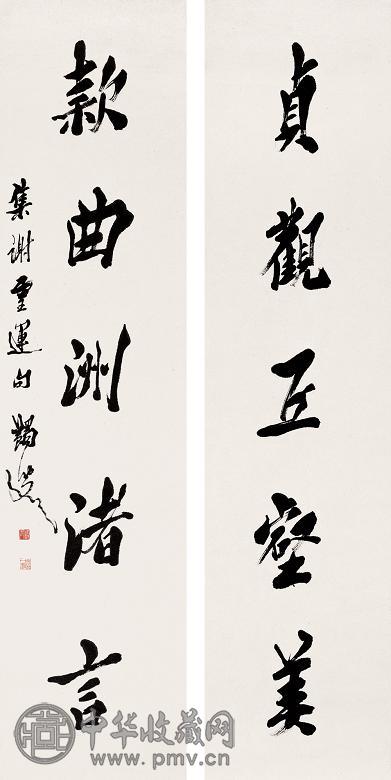 貞觀丘壑美
款曲洲渚言
集謝靈運句 蠲叟
中华收藏网
www.pmv.cn